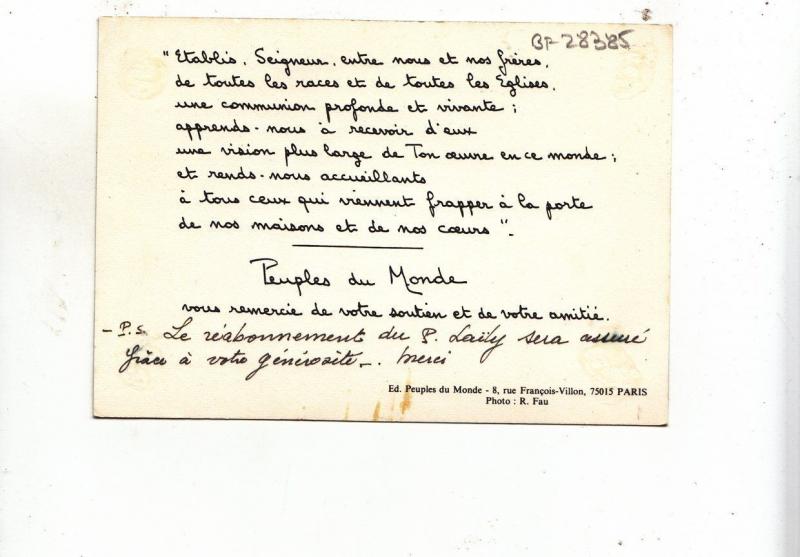 BF 28385
"Etablis, Seigneur, entre nous et nos frères,
de toutes les races et de toutes les Eglises,
une communion profonde et vivante ;
apprends-nous à recevoir d'eux
une vision plus large de Ton œuvre en ce monde ;
et rends-nous accueillants
à tous ceux qui viennent frapper à la porte
de nos maisons et de nos cœurs".
Peuples du Monde
vous remercie de votre soutien et de votre amitié.
- P.S. Le réabonnement du P. sera assuré
grâce à votre générosité -. Merci
Ed. Peuples du Monde - 8, rue François-Villon, 75015 PARIS
Photo : R. Fau